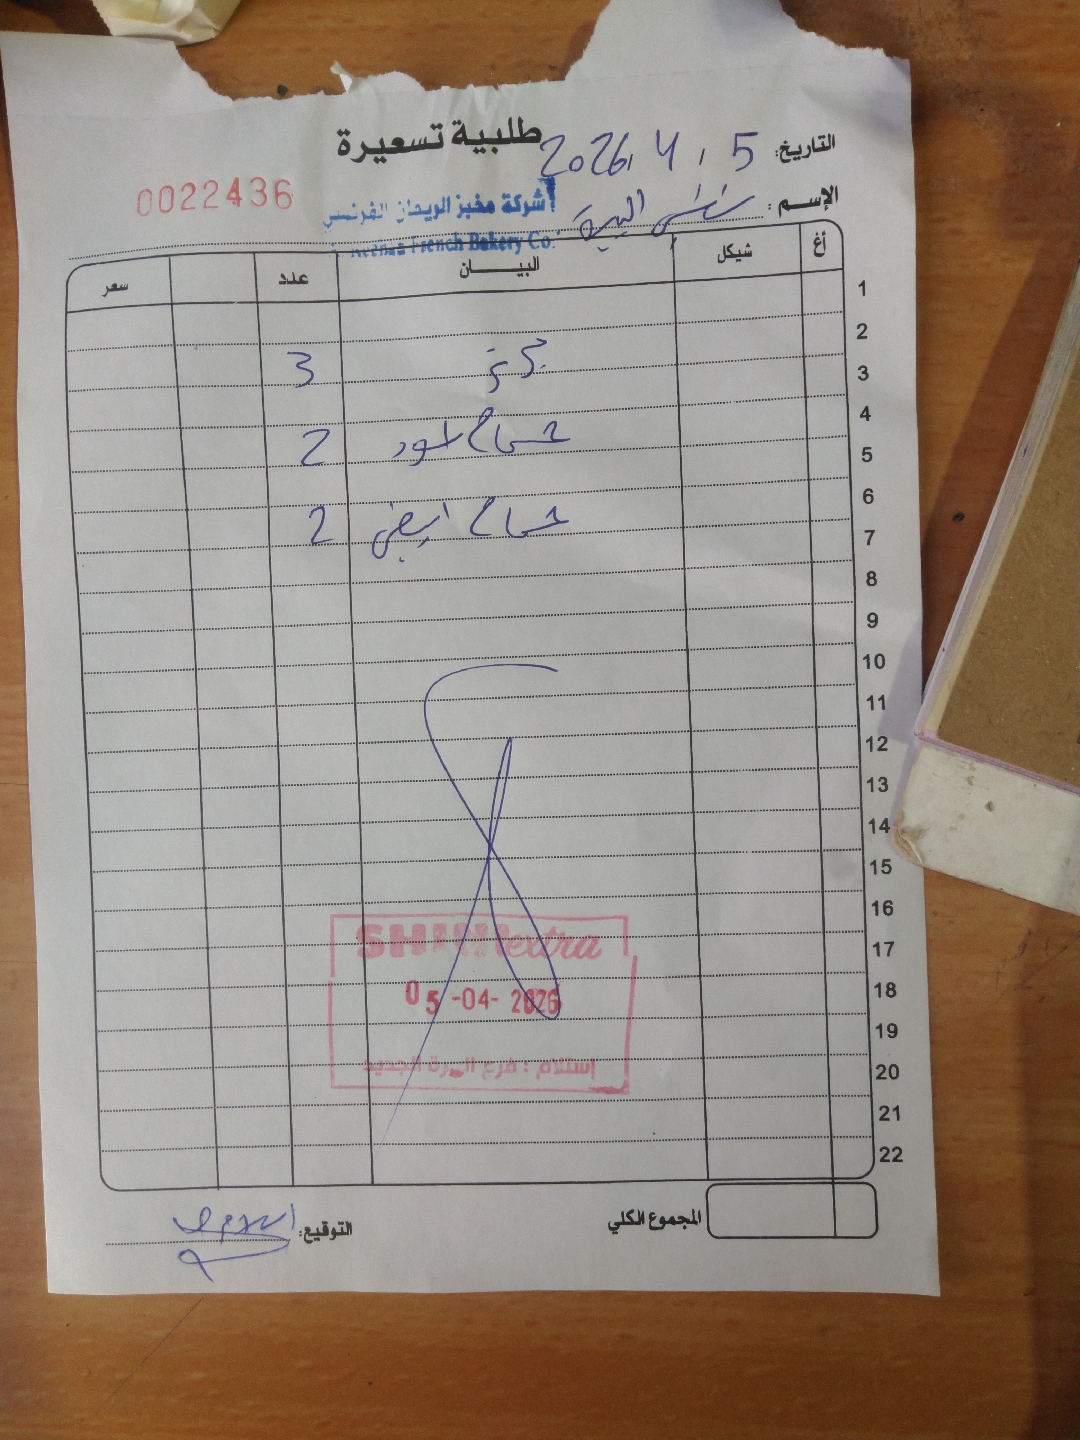 طلبية تسعيرة
التاريخ: 5 / 4 / 2026
0022436
شركة مخبز الريحان الفرنسي
French Bakery Co.
الإسم: البيرة
أغ شيكل البيـــــان عدد سعر
1
2
3 3
4
5 اسود 2
6
7 ابيض 2
8
9
10
11
12
13
14
15
16
17
18
19
20
21
22
SHINI extra
05 -04- 2026
إستلام : فرع البيرة الجديد
المجموع الكلي
التوقيع: